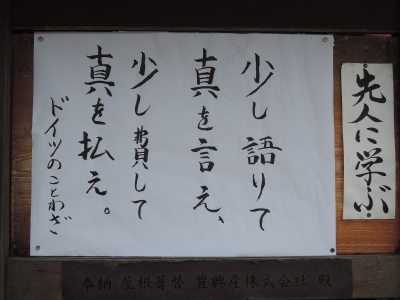 先人に学ぶ
少し語りて
真を言え、
少し費して
真を払え。
ドイツのことわざ
奉納 屋根葺替 豊興産株式会社 殿